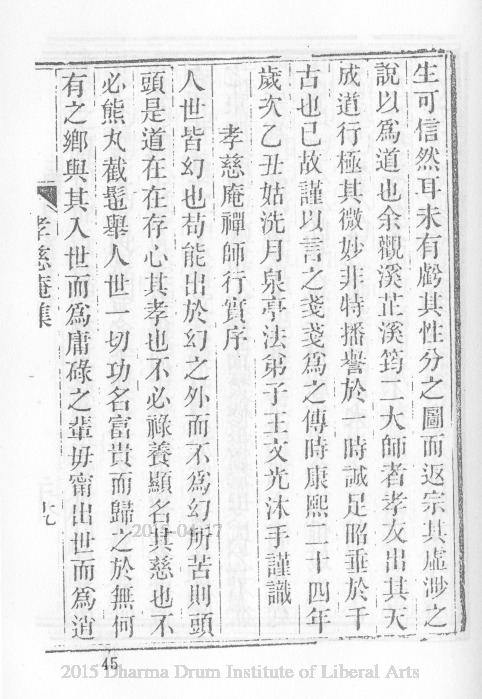 生可信然耳未有虧其性分之圖而返宗其虛渺之
說以為道也余觀溪芷溪筠二大師者孝友出其天
成道行極其微妙非特播譽於一時誠足昭垂於千
古也已故謹以言之戔戔為之傳時康熙二十四年
歲次乙丑姑洗月泉亭法弟子王文光沐手謹識
孝慈庵禪師行實序
人世皆幻也苟能出於幻之外而不為幻所苦則頭
頭是道在在存心其孝也不必祿養顯名其慈也不
必熊丸截髢舉人世一切功名富貴而歸之於無何
有之鄉與其入世而為庸碌之輩毋甯出世而為逍
孝慈庵集
七
45
2015 Dharma Drum Institute of Liberal Arts